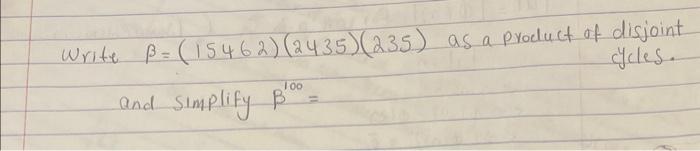 Write β=(15462)(2435)(235) as a product of disjoint
cycles.
and simplify β¹⁰⁰ =